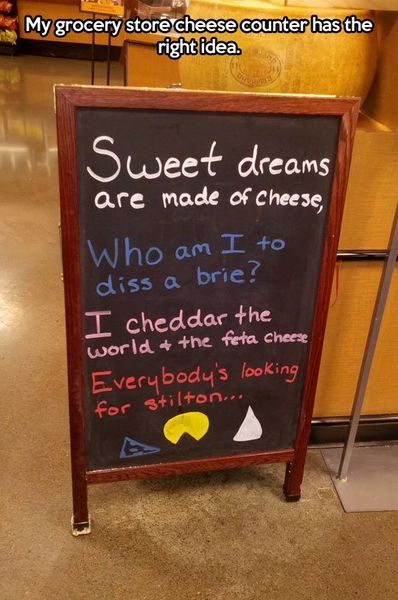 My grocery store cheese counter has the
right idea.
Sweet dreams
are made of cheese,
Who am I to
diss a brie?
I cheddar the
world + the feta cheese
Everybody's looking
for stilton...